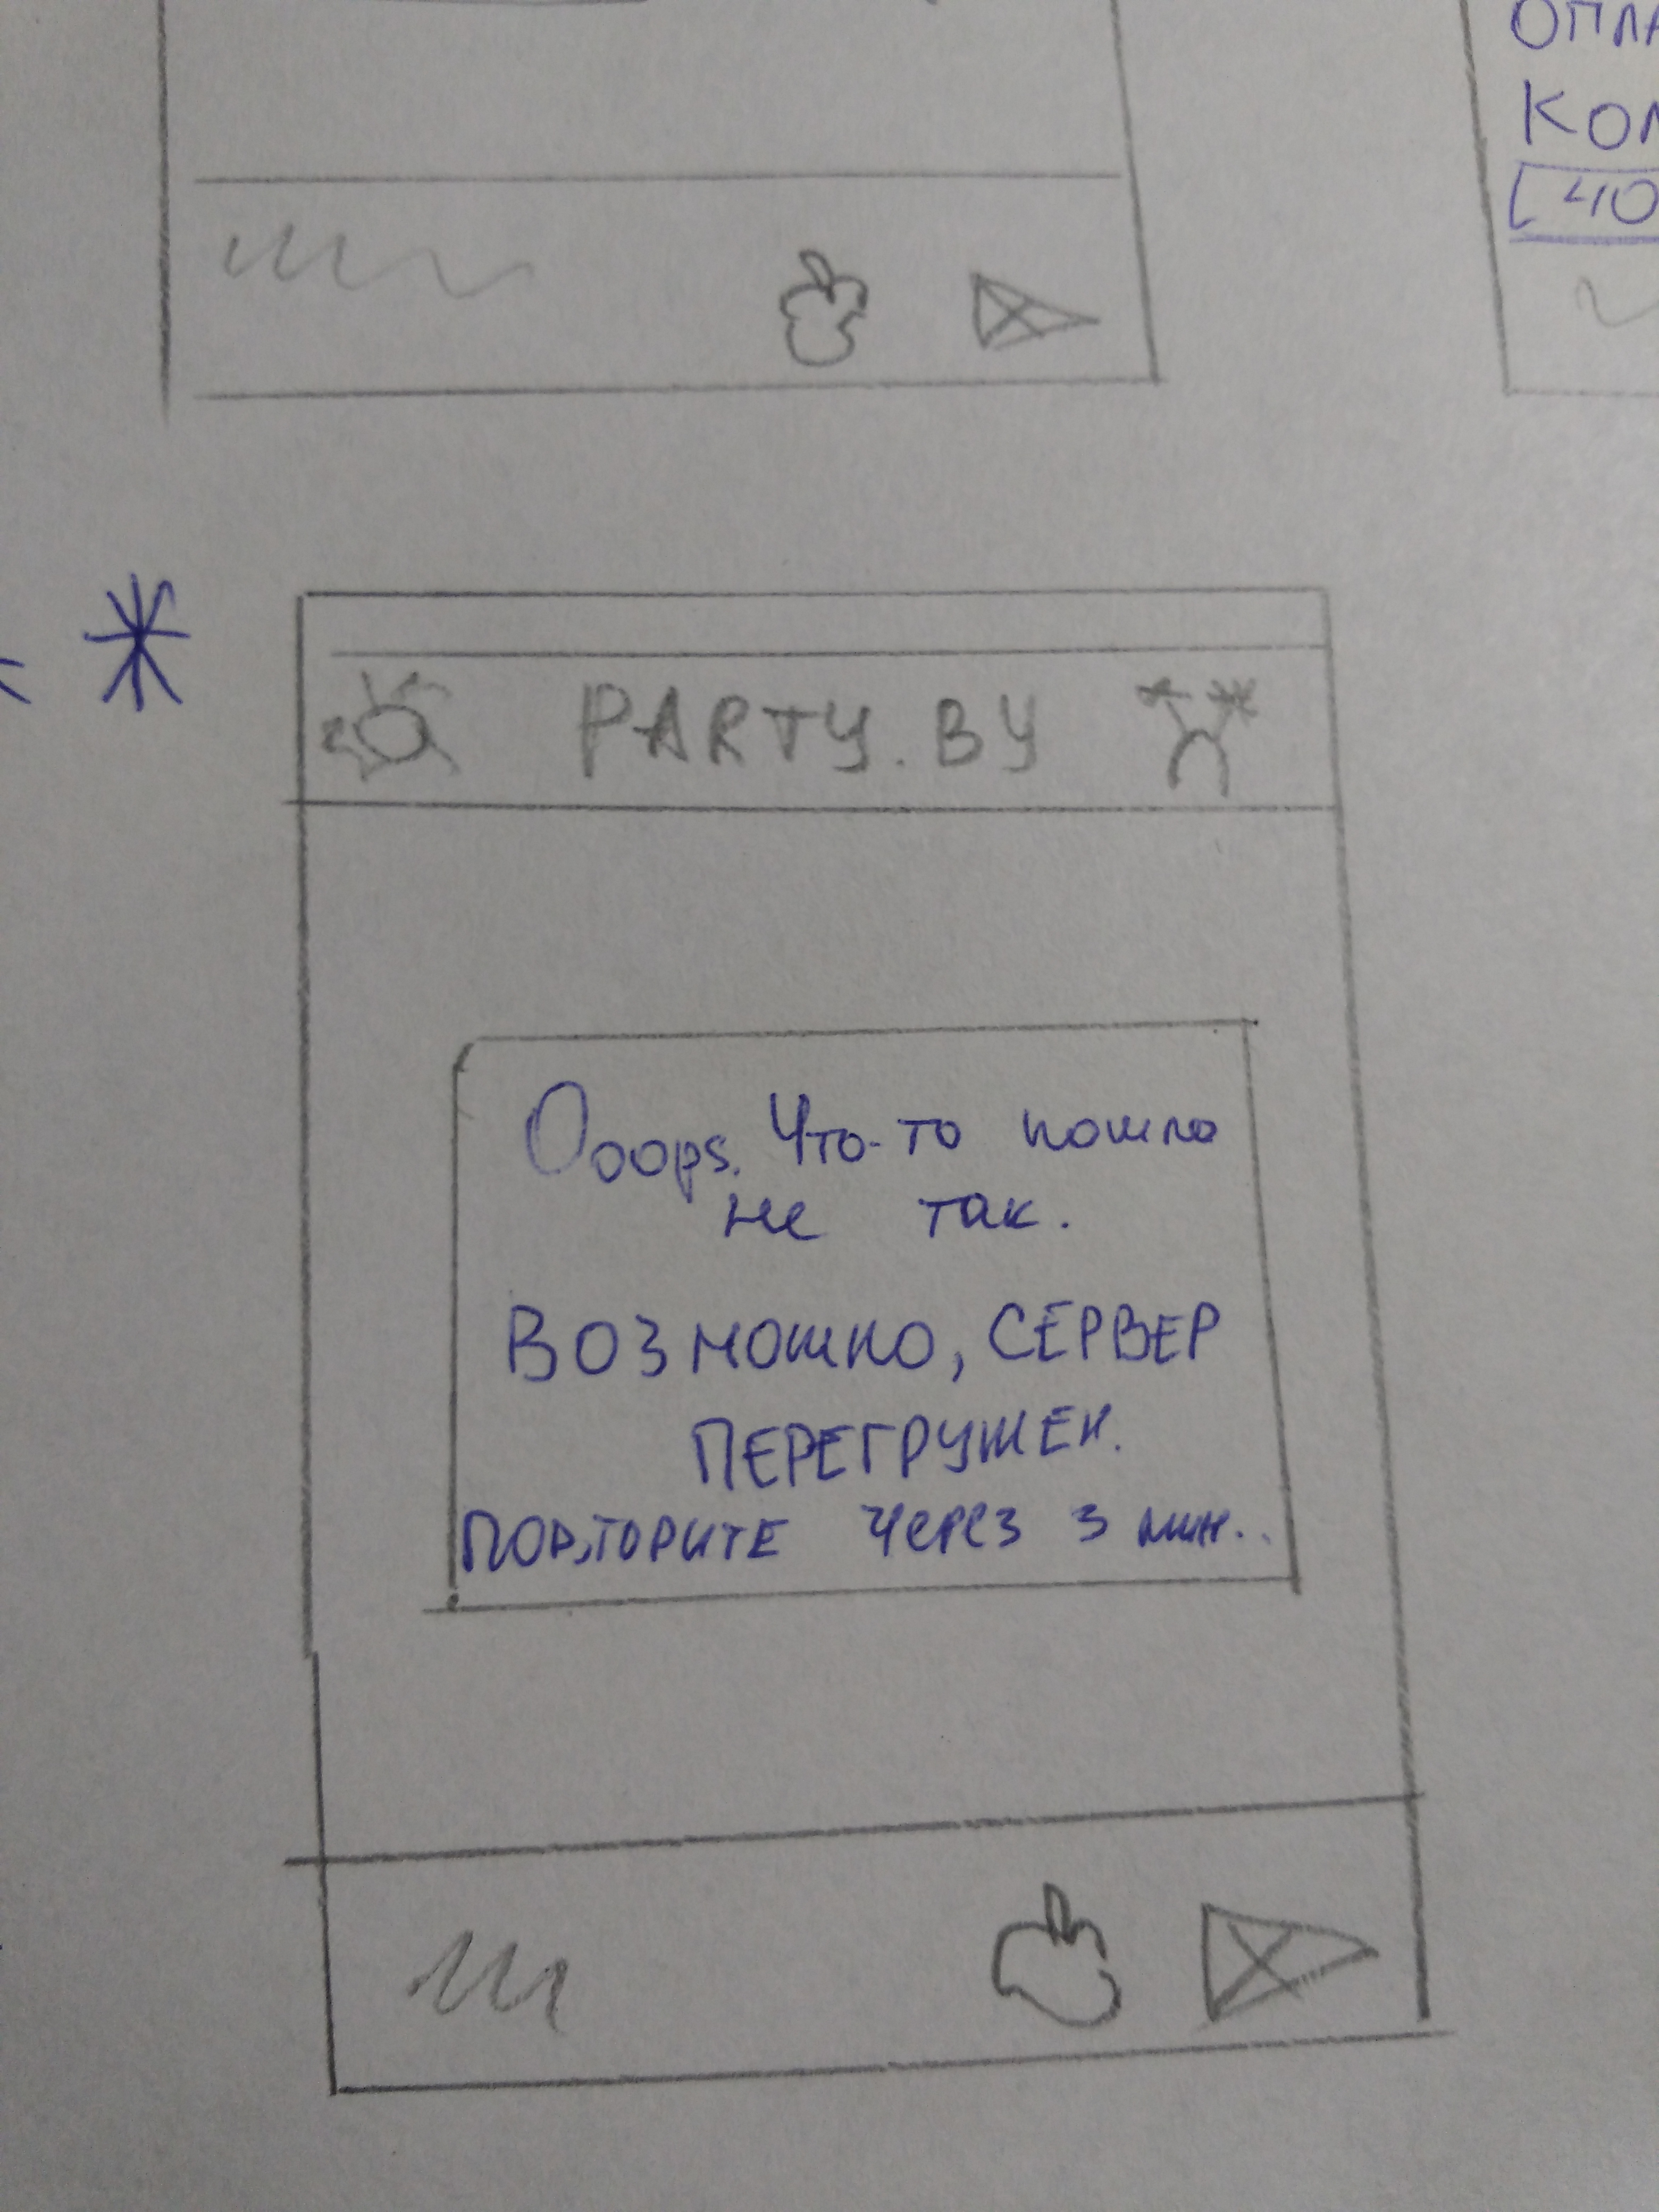 ОПЛА
КОМ
40
*
PARTY.BY
Ooops. Что-то пошло
не так.
ВОЗМОШНО, СЕРВЕР
ПЕРЕГРУЖЕН.
ПОВТОРИТЕ ЧЕРЕЗ 3 мин..